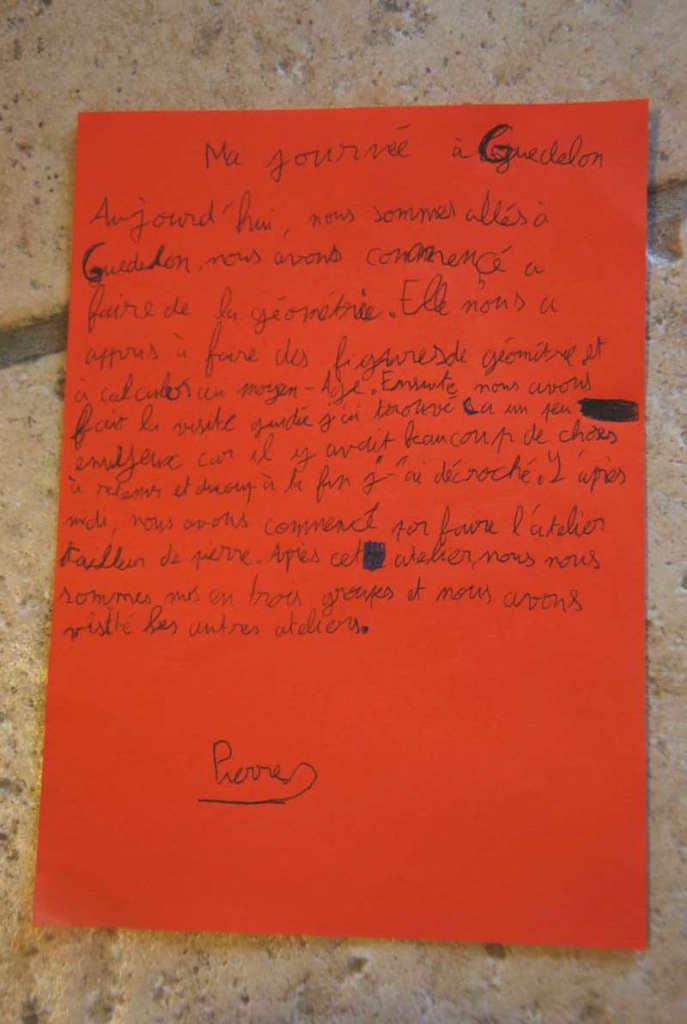 Ma journée à Guedelon
Aujourd'hui, nous sommes allés à
Guedelon, nous avons commencé a
faire de la géométrie. Elle nous a
appris à faire des figures de géométrie et
à calculer au moyen-Age. Ensuite nous avons
fait la visite guidée j'ai trouvé ça un peu
ennuyeux car il y avait beaucoup de choses
à retenir et du coup à la fin j'ai décroché. L'après
midi, nous avons commencé par faire l'atelier
tailleur de pierre. Après cet atelier, nous nous
sommes mis en trois groupes et nous avons
visité les autres ateliers.
Pierre